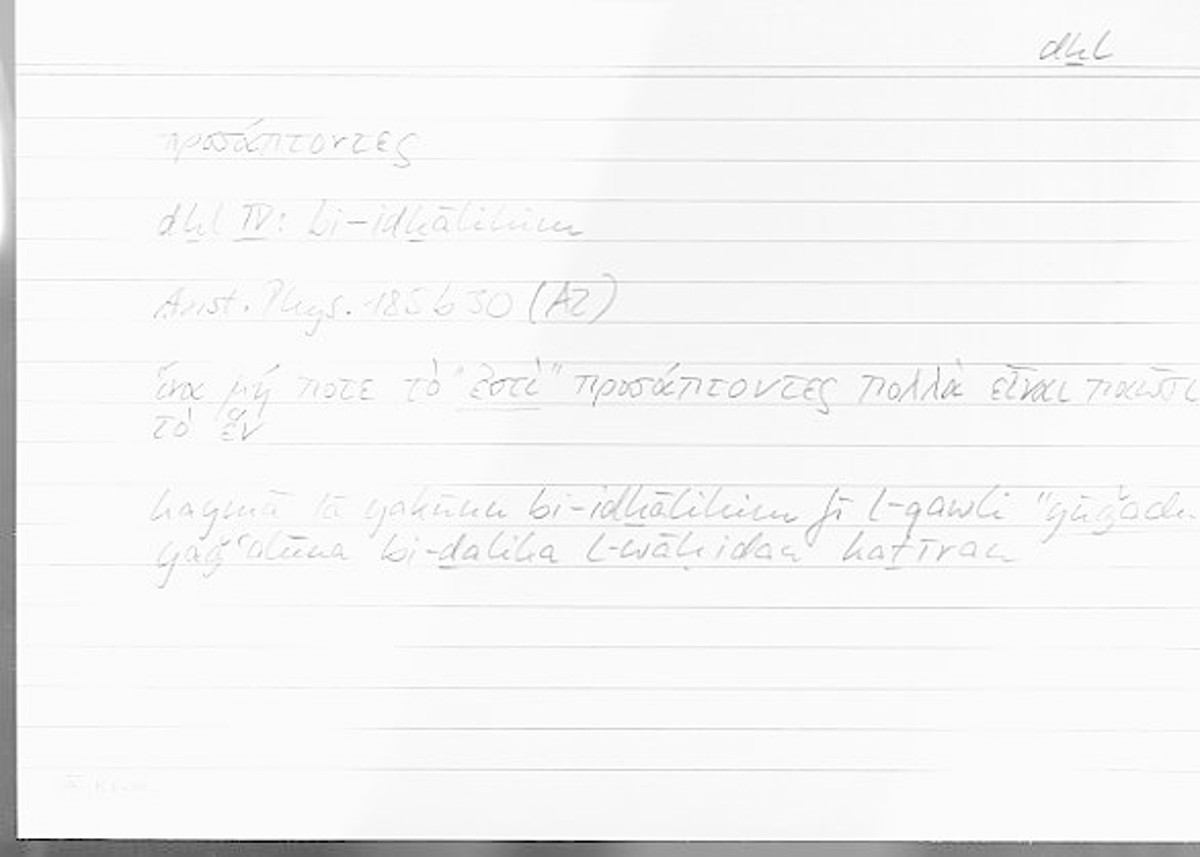 dḫl
προσάπτοντες
dḫl IV: bi-idḫālihim
Arist. Phys. 185 b 30 (A2)
ἵνα μή ποτε τὸ "ἐστὶ" προσάπτοντες πολλὰ εἶναι ποιῶσι
τὸ ἕν
kaymā lā yakūnu bi-idḫālihim fī l-qawli "yūǧadu
yaǧʿalūna bi-ḏālika l-wāḥidan kaṯīran